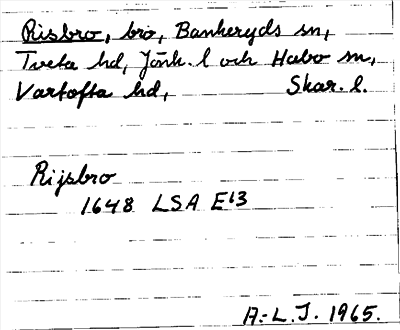 Risbro, bro, Bankeryds sn,
Tveta hd, Jönk. l och Habo sn,
Vartofta hd, Skar. l.
Rijsbro
1648 LSA E13
A.-L.J. 1965.